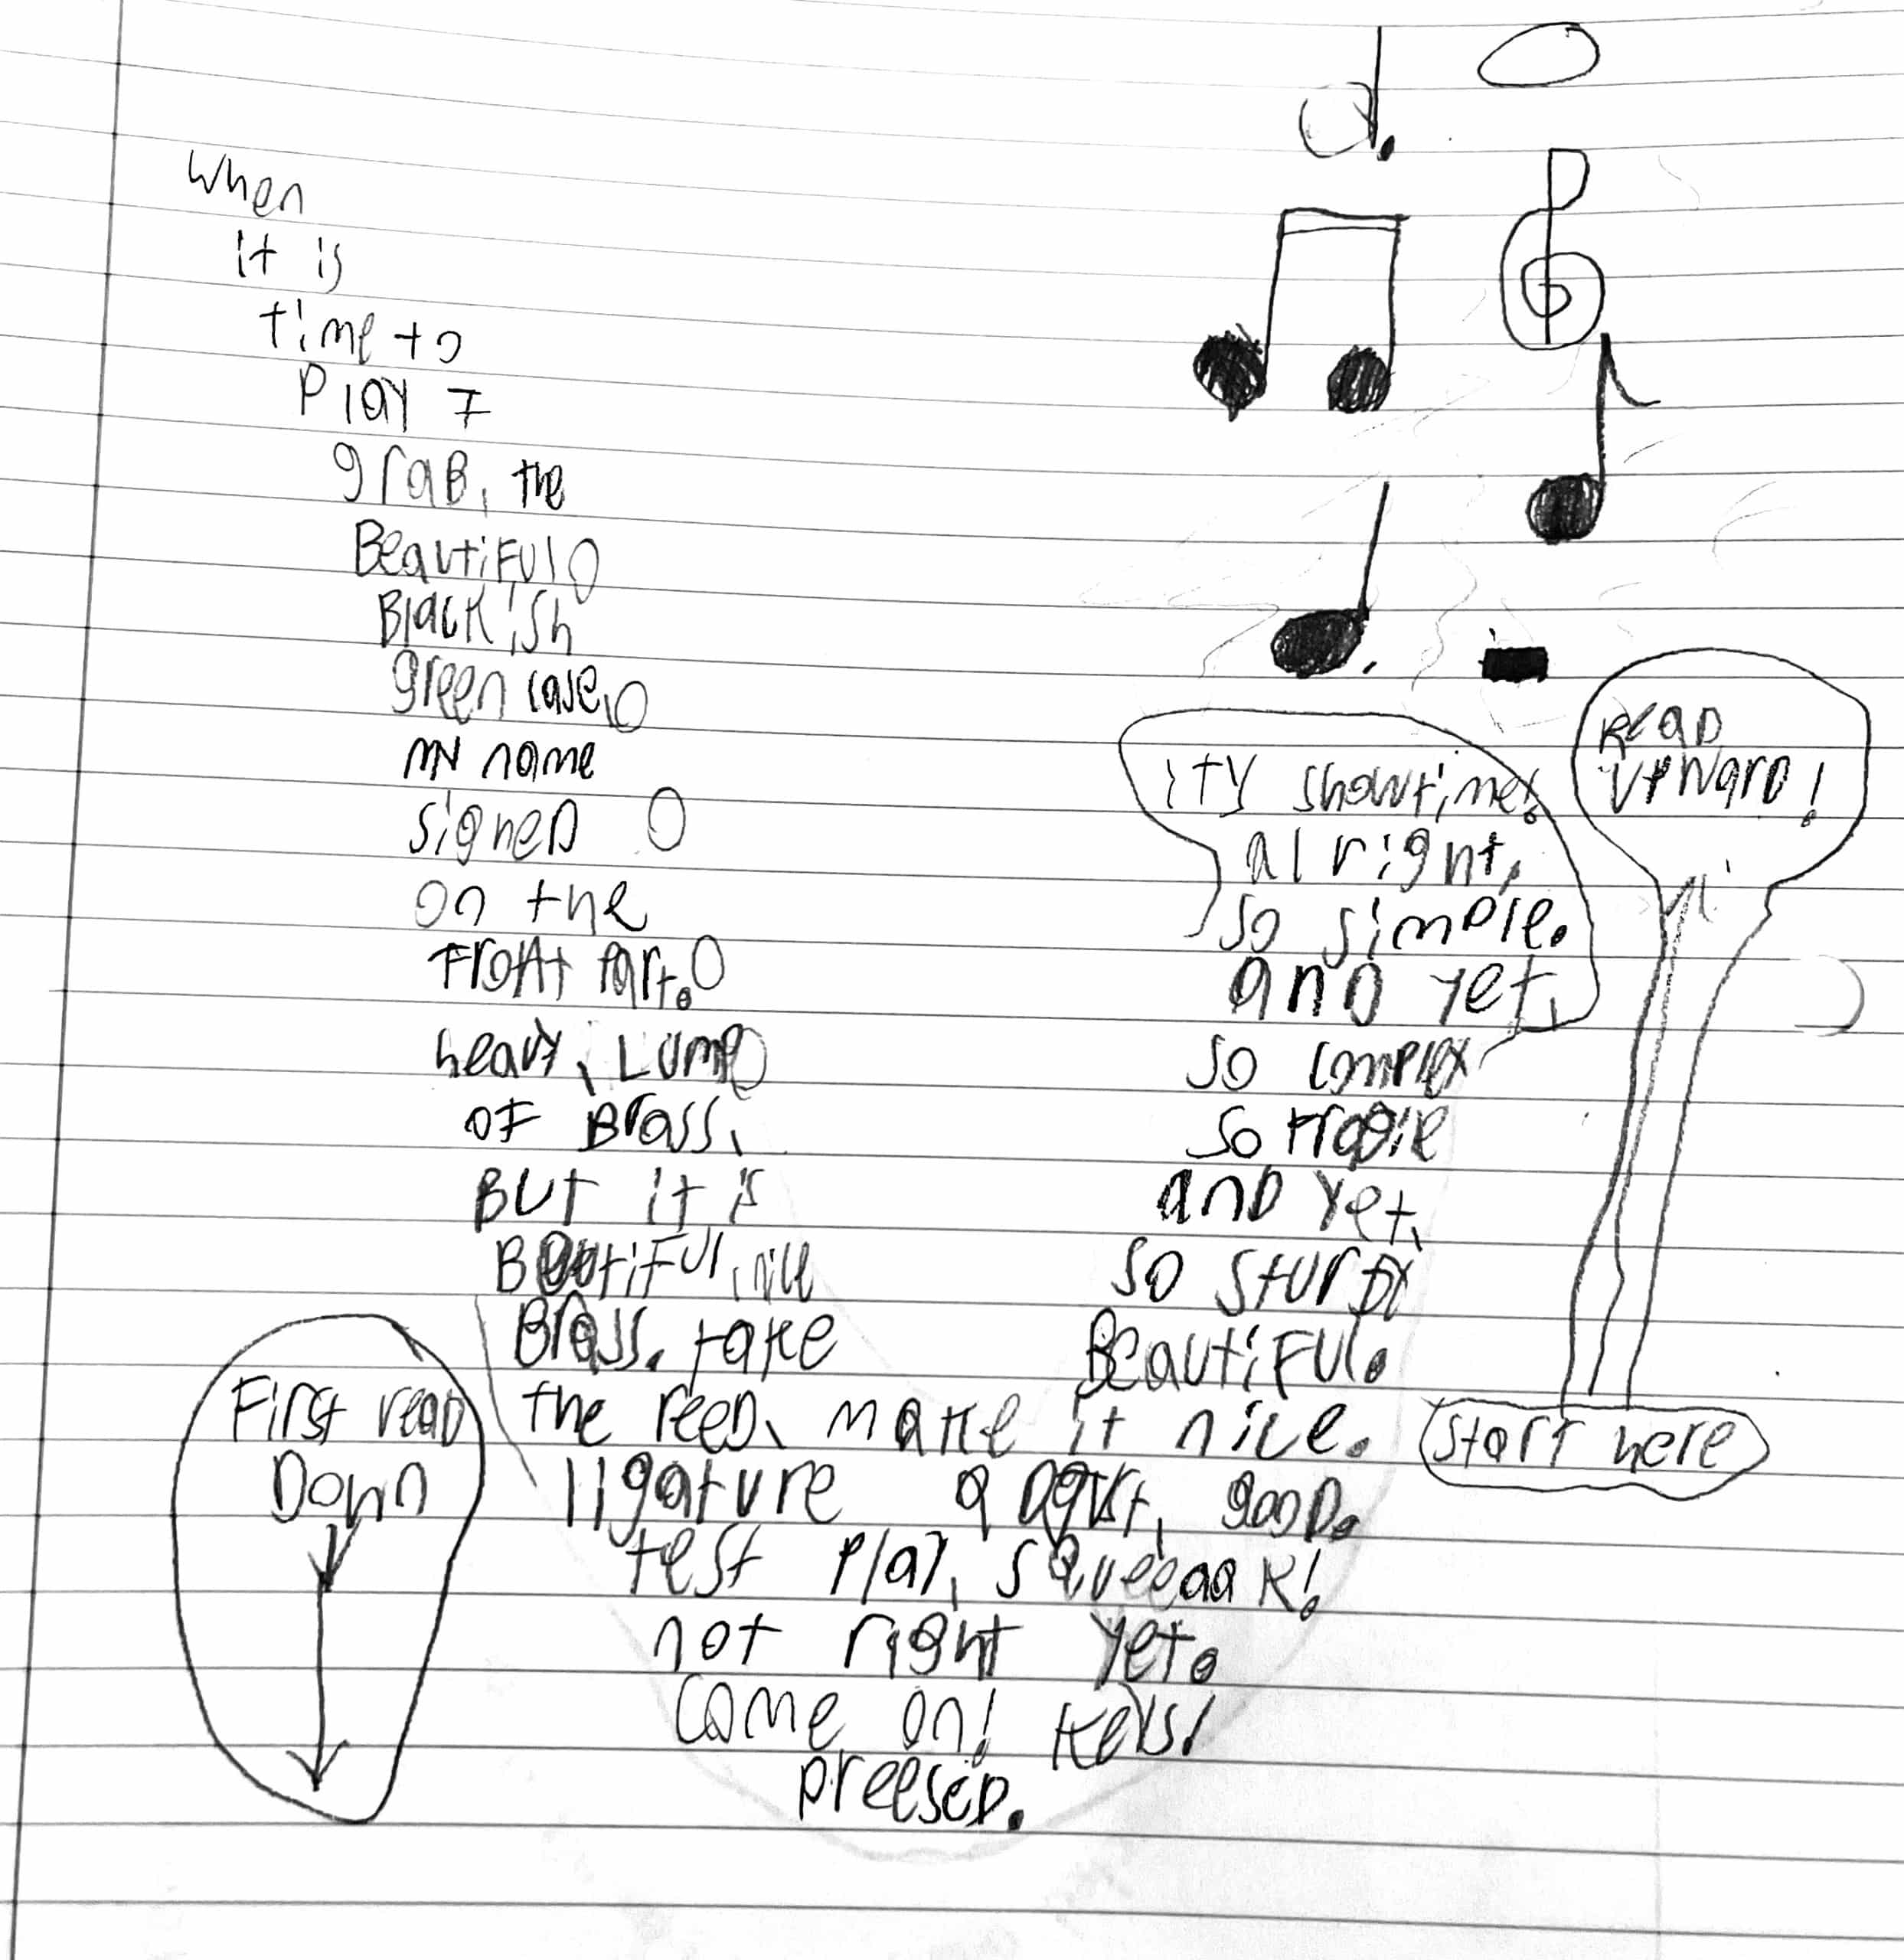 When
it is
time to
Play I
graB, the
BeautiFul
Blackish
green case,
my name
signeD
on the
Front Part.
heavy, Lump
oF Brass,
But it is
BeautiFul, nice
Brass. take
the reeD, make it nice.
ligature aDgust, gooD.
test play, squeeaak!
not right yet.
Come on! Keys!
preeseD.
First reaD
Down
start here
ReaD
upwarD!
BeautiFul.
so sturDy
anD yet,
so Fragile
so complex
anD yet,
so simple.
alright,
its showtime!